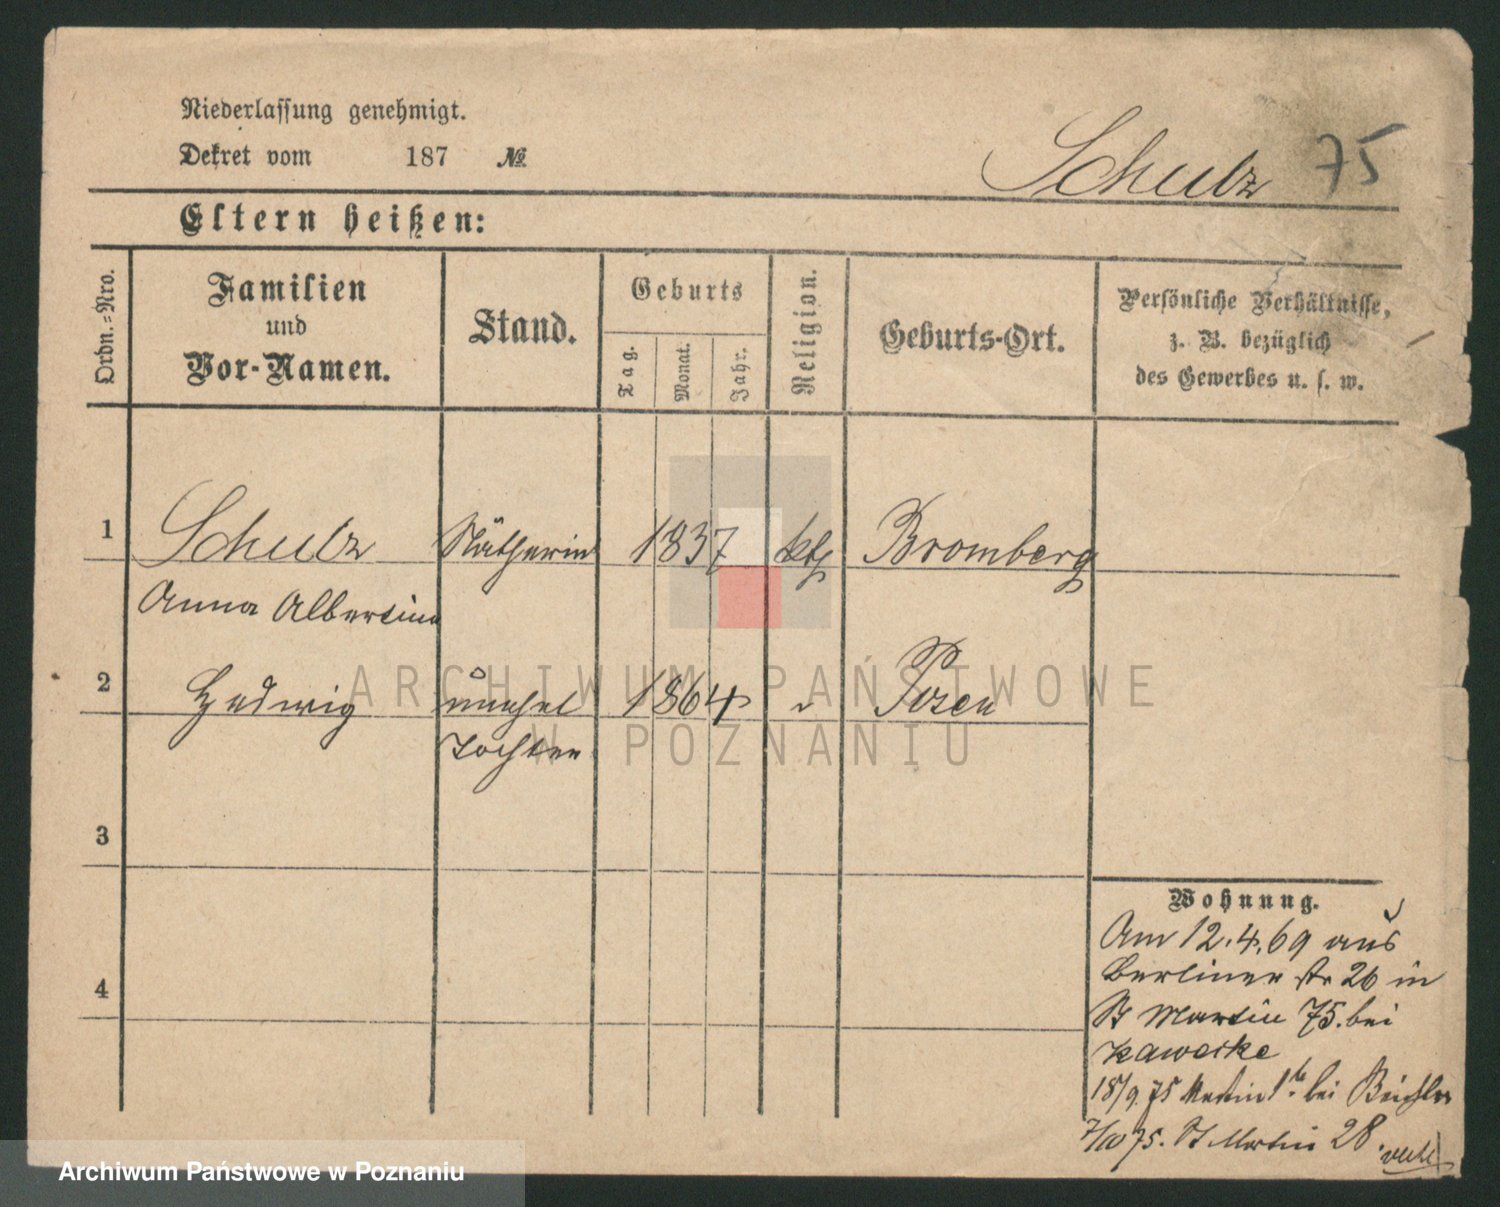 Niederlassung genehmigt.
Dekret vom 187 №
Schulz 75
Eltern heißen:
Ordn.=Nro.
Familien
und
Vor-Namen.
Stand.
Geburts
Tag.
Monat.
Jahr.
Religion.
Geburts-Ort.
Persönliche Verhältnisse,
z. B. bezüglich
des Gewerbes u. s. w.
1 Schulz Nätherin 1837 kth Bromberg
Anna Albertine
2 Hedwig unehel 1864 Posen
Tochter
3
4
Wohnung.
Am 12.4.69 aus
Berliner str 26 in
St Martin 75. bei
Kawecke
18/9.75 Martin bei
7/10 75. St Martin 28.
ARCHIWUM PAŃSTWOWE
W POZNANIU
Archiwum Państwowe w Poznaniu